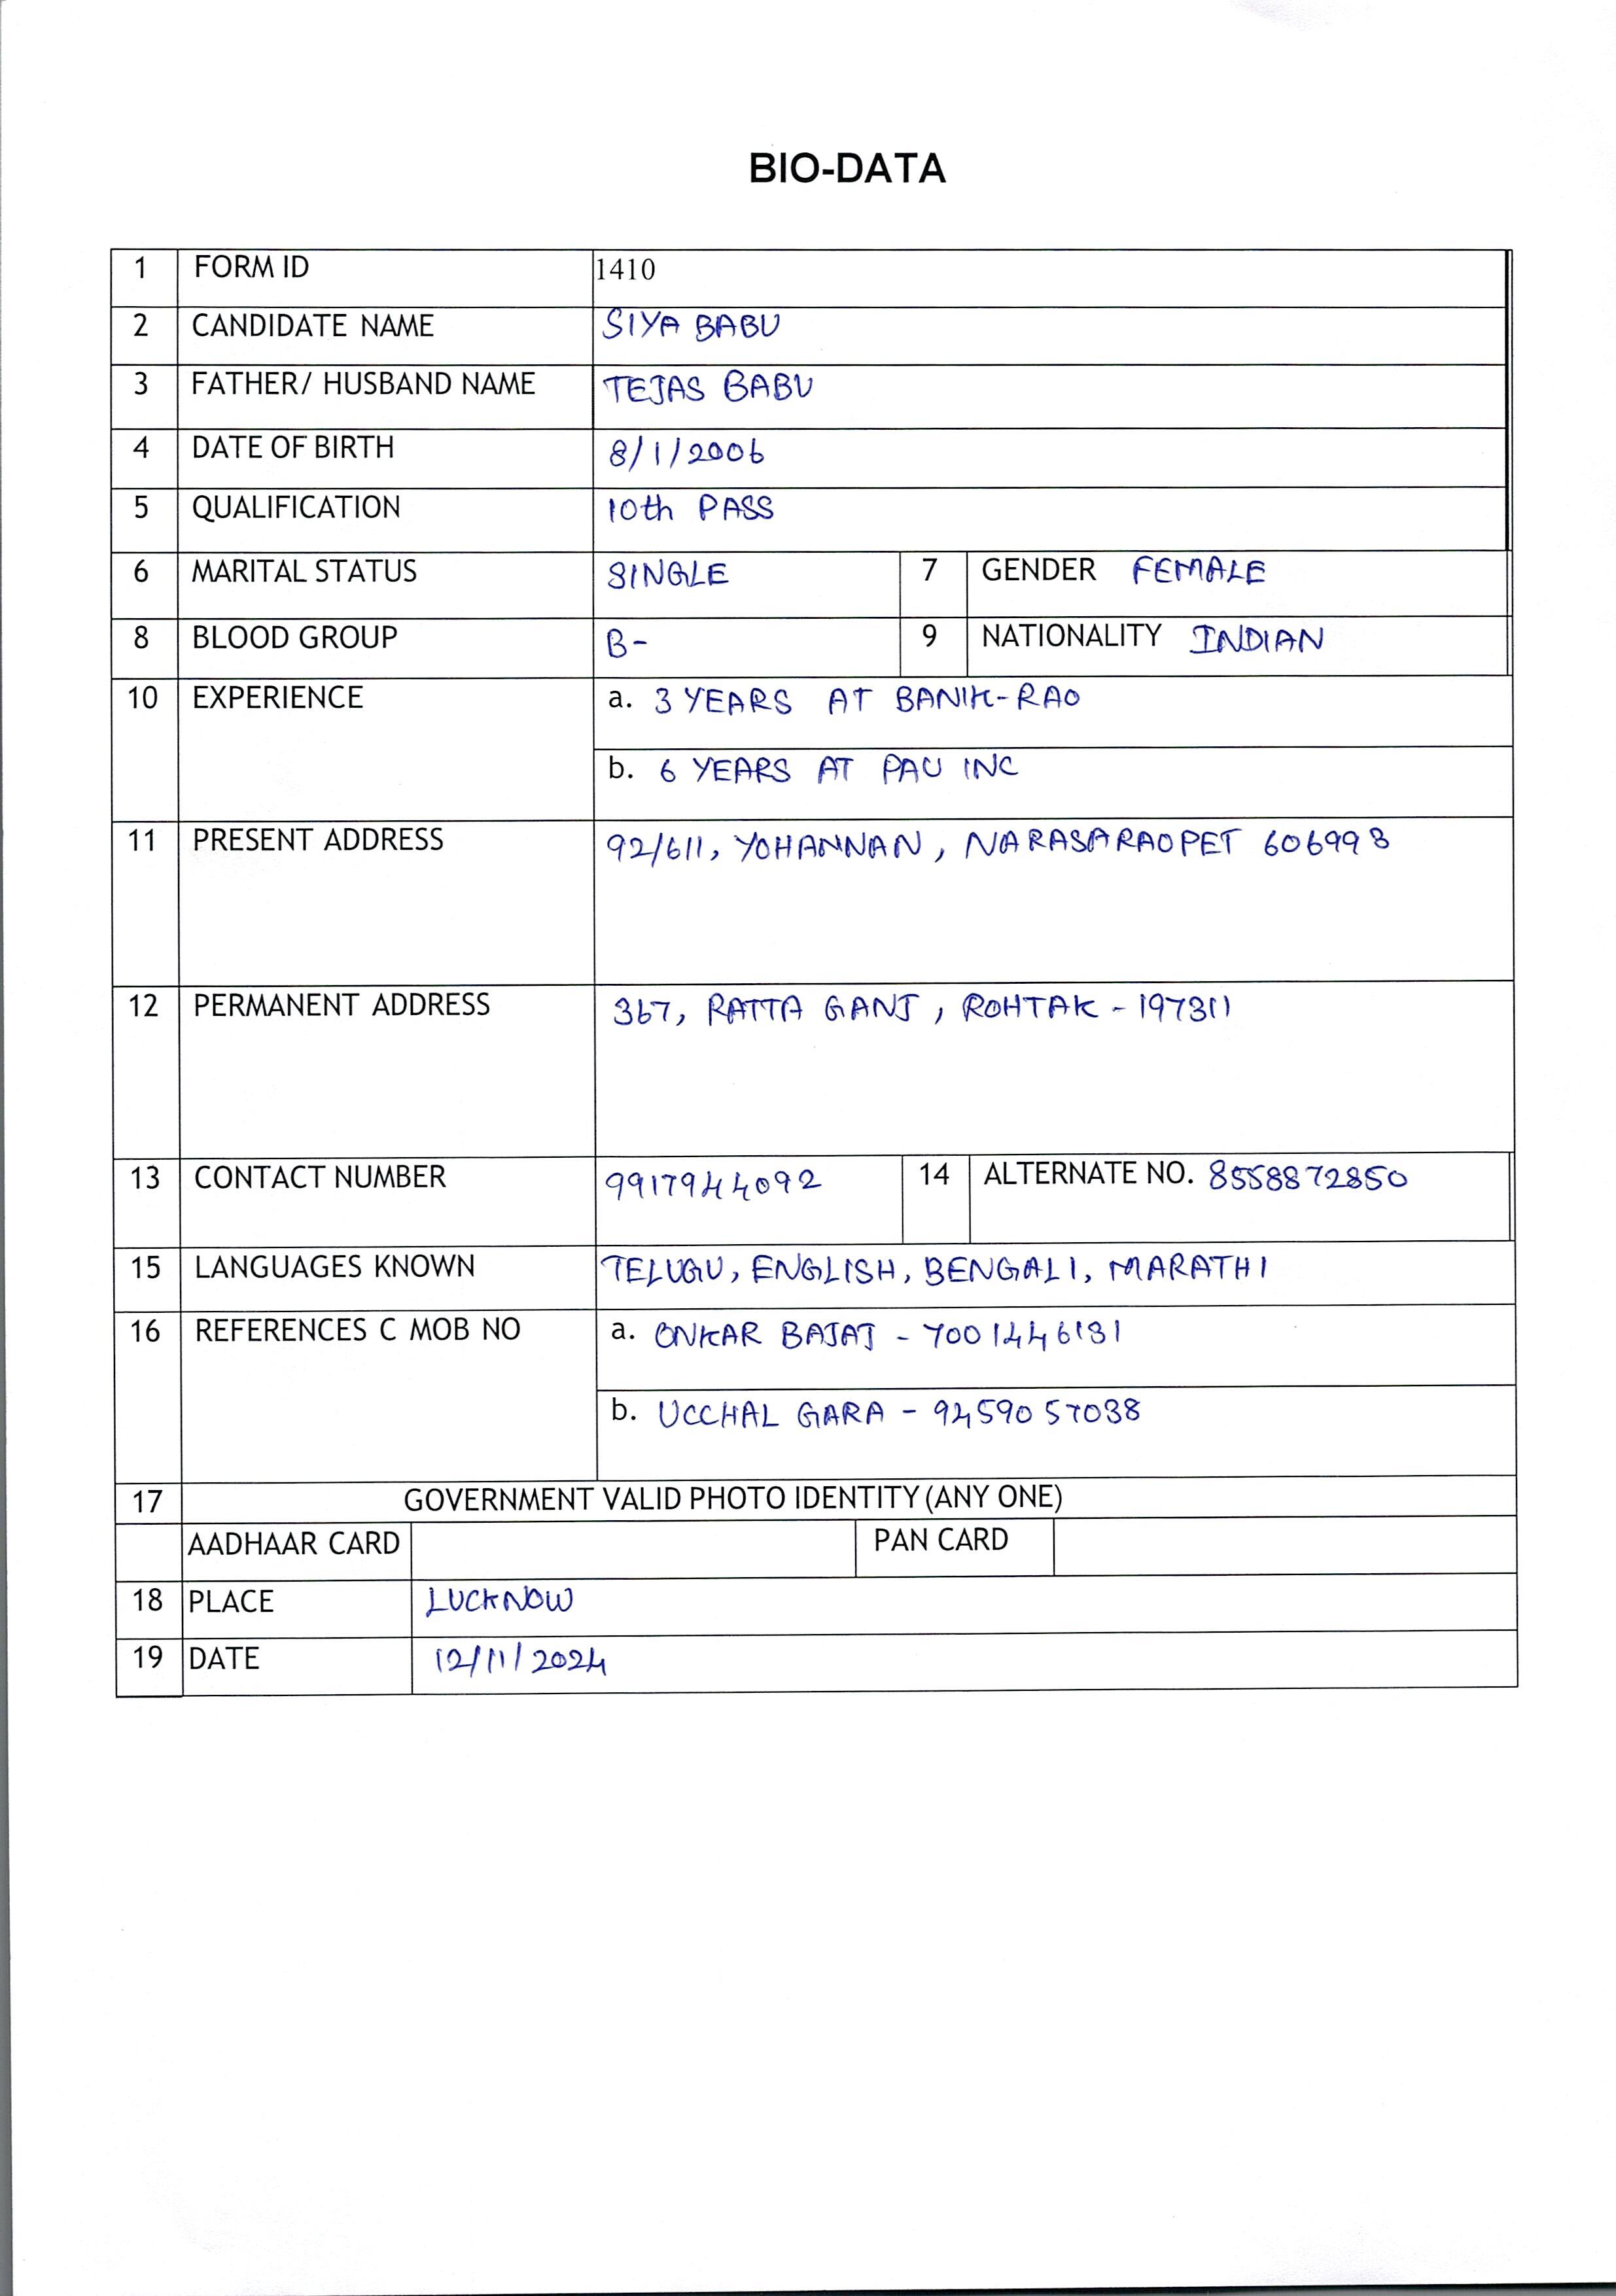 BIO-DATA
1 FORM ID 1410
2 CANDIDATE NAME SIYA BABU
3 FATHER/ HUSBAND NAME TEJAS BABU
4 DATE OF BIRTH 8/1/2006
5 QUALIFICATION 10th PASS
6 MARITAL STATUS SINGLE 7 GENDER FEMALE
8 BLOOD GROUP B- 9 NATIONALITY INDIAN
10 EXPERIENCE a. 3 YEARS AT BANIK-RAO
b. 6 YEARS AT PAU INC
11 PRESENT ADDRESS 92/611, YOHANNAN, NARASARAOPET 606998
12 PERMANENT ADDRESS 367, RATTA GANJ, ROHTAK - 197311
13 CONTACT NUMBER 9917944092 14 ALTERNATE NO. 8558872850
15 LANGUAGES KNOWN TELUGU, ENGLISH, BENGALI, MARATHI
16 REFERENCES C MOB NO a. ONKAR BAJAJ - 7001446131
b. UCCHAL GARA - 9459057038
17 GOVERNMENT VALID PHOTO IDENTITY (ANY ONE)
AADHAAR CARD PAN CARD
18 PLACE LUCKNOW
19 DATE 12/11/2024